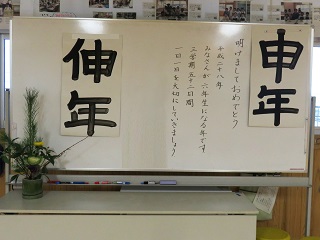 申年
明けましておめでとう
平成二十八年
みなさんが六年生になる年です
三学期五十三日間
一日一日を大切にしていきましょう
伸年